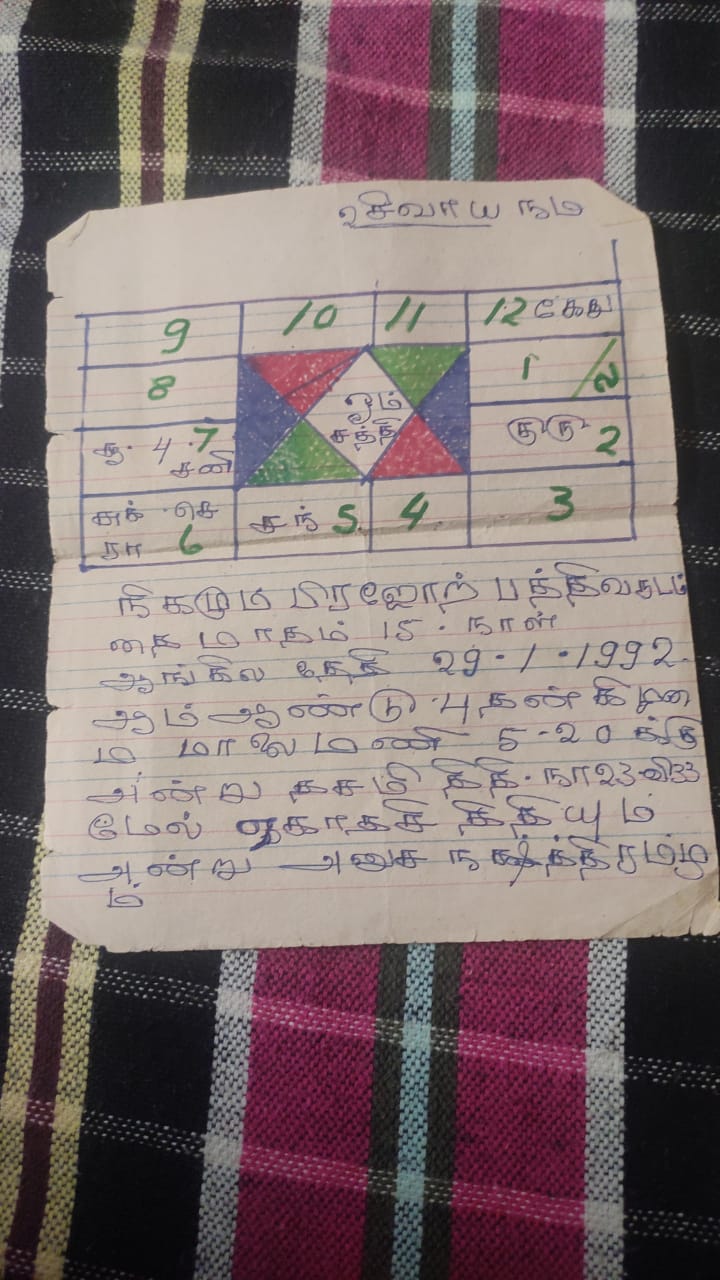 உசிவாய நம
9 10 11 12 கேது
8 1 /ல
ஓம்
சத்தி
சூ 4 . 7
சனி
குரு 2
சுக் . செ
ரா 6
சந் 5 4 3
நிகழும் பத்திவருடம்
தை மாதம் 15 . நாள்
ஆங்கில தேதி 29 . 1 . 1992 .
ஆம் ஆண்டு புதன்கிழமை
மாலை மணி 5 - 20 க்கு
அன்று தசமி திதி . நா 23 - வி 33
மேல் ஏகாதசி திதியும்
அன்று அனுச
ம்